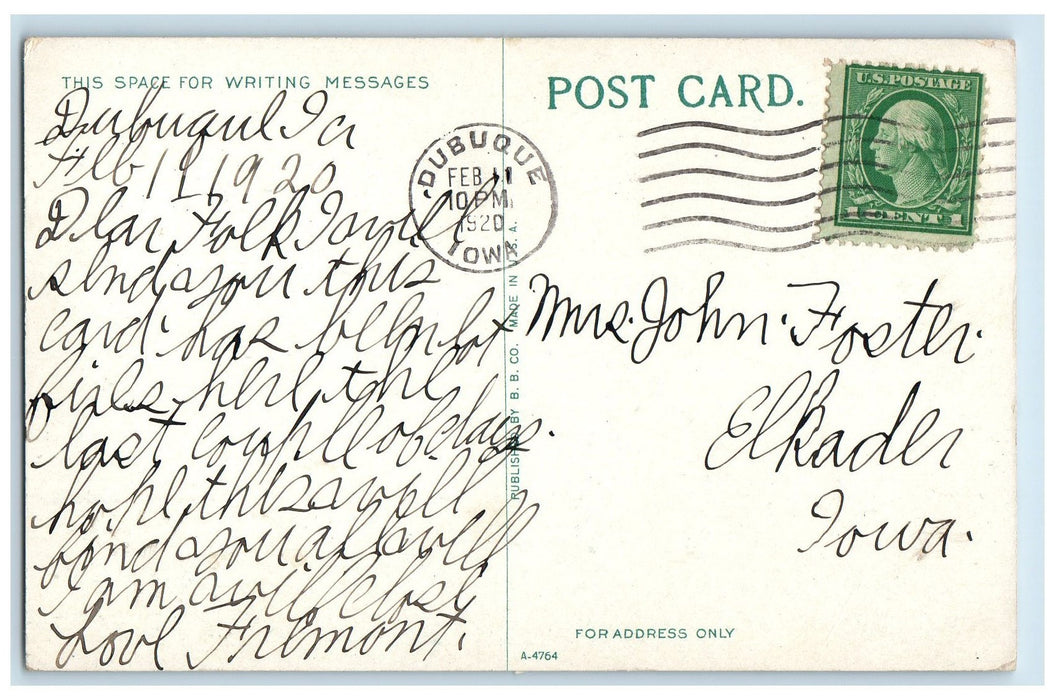 THIS SPACE FOR WRITING MESSAGES
Dubuque Ia
Feb 11 1920
Dear Folk I will
send you this
card has been hot
here the
last couple of days.
hope this will
find you all well
I am well close
Love Fremont.
PUBLISHED BY B. B. CO. MADE IN U. S. A.
POST CARD.
DUBUQUE
FEB 11
10 PM
1920
IOWA
U.S. POSTAGE
1 CENT 1
Mrs. John. Foster.
Elkader
Iowa.
FOR ADDRESS ONLY
A-4764